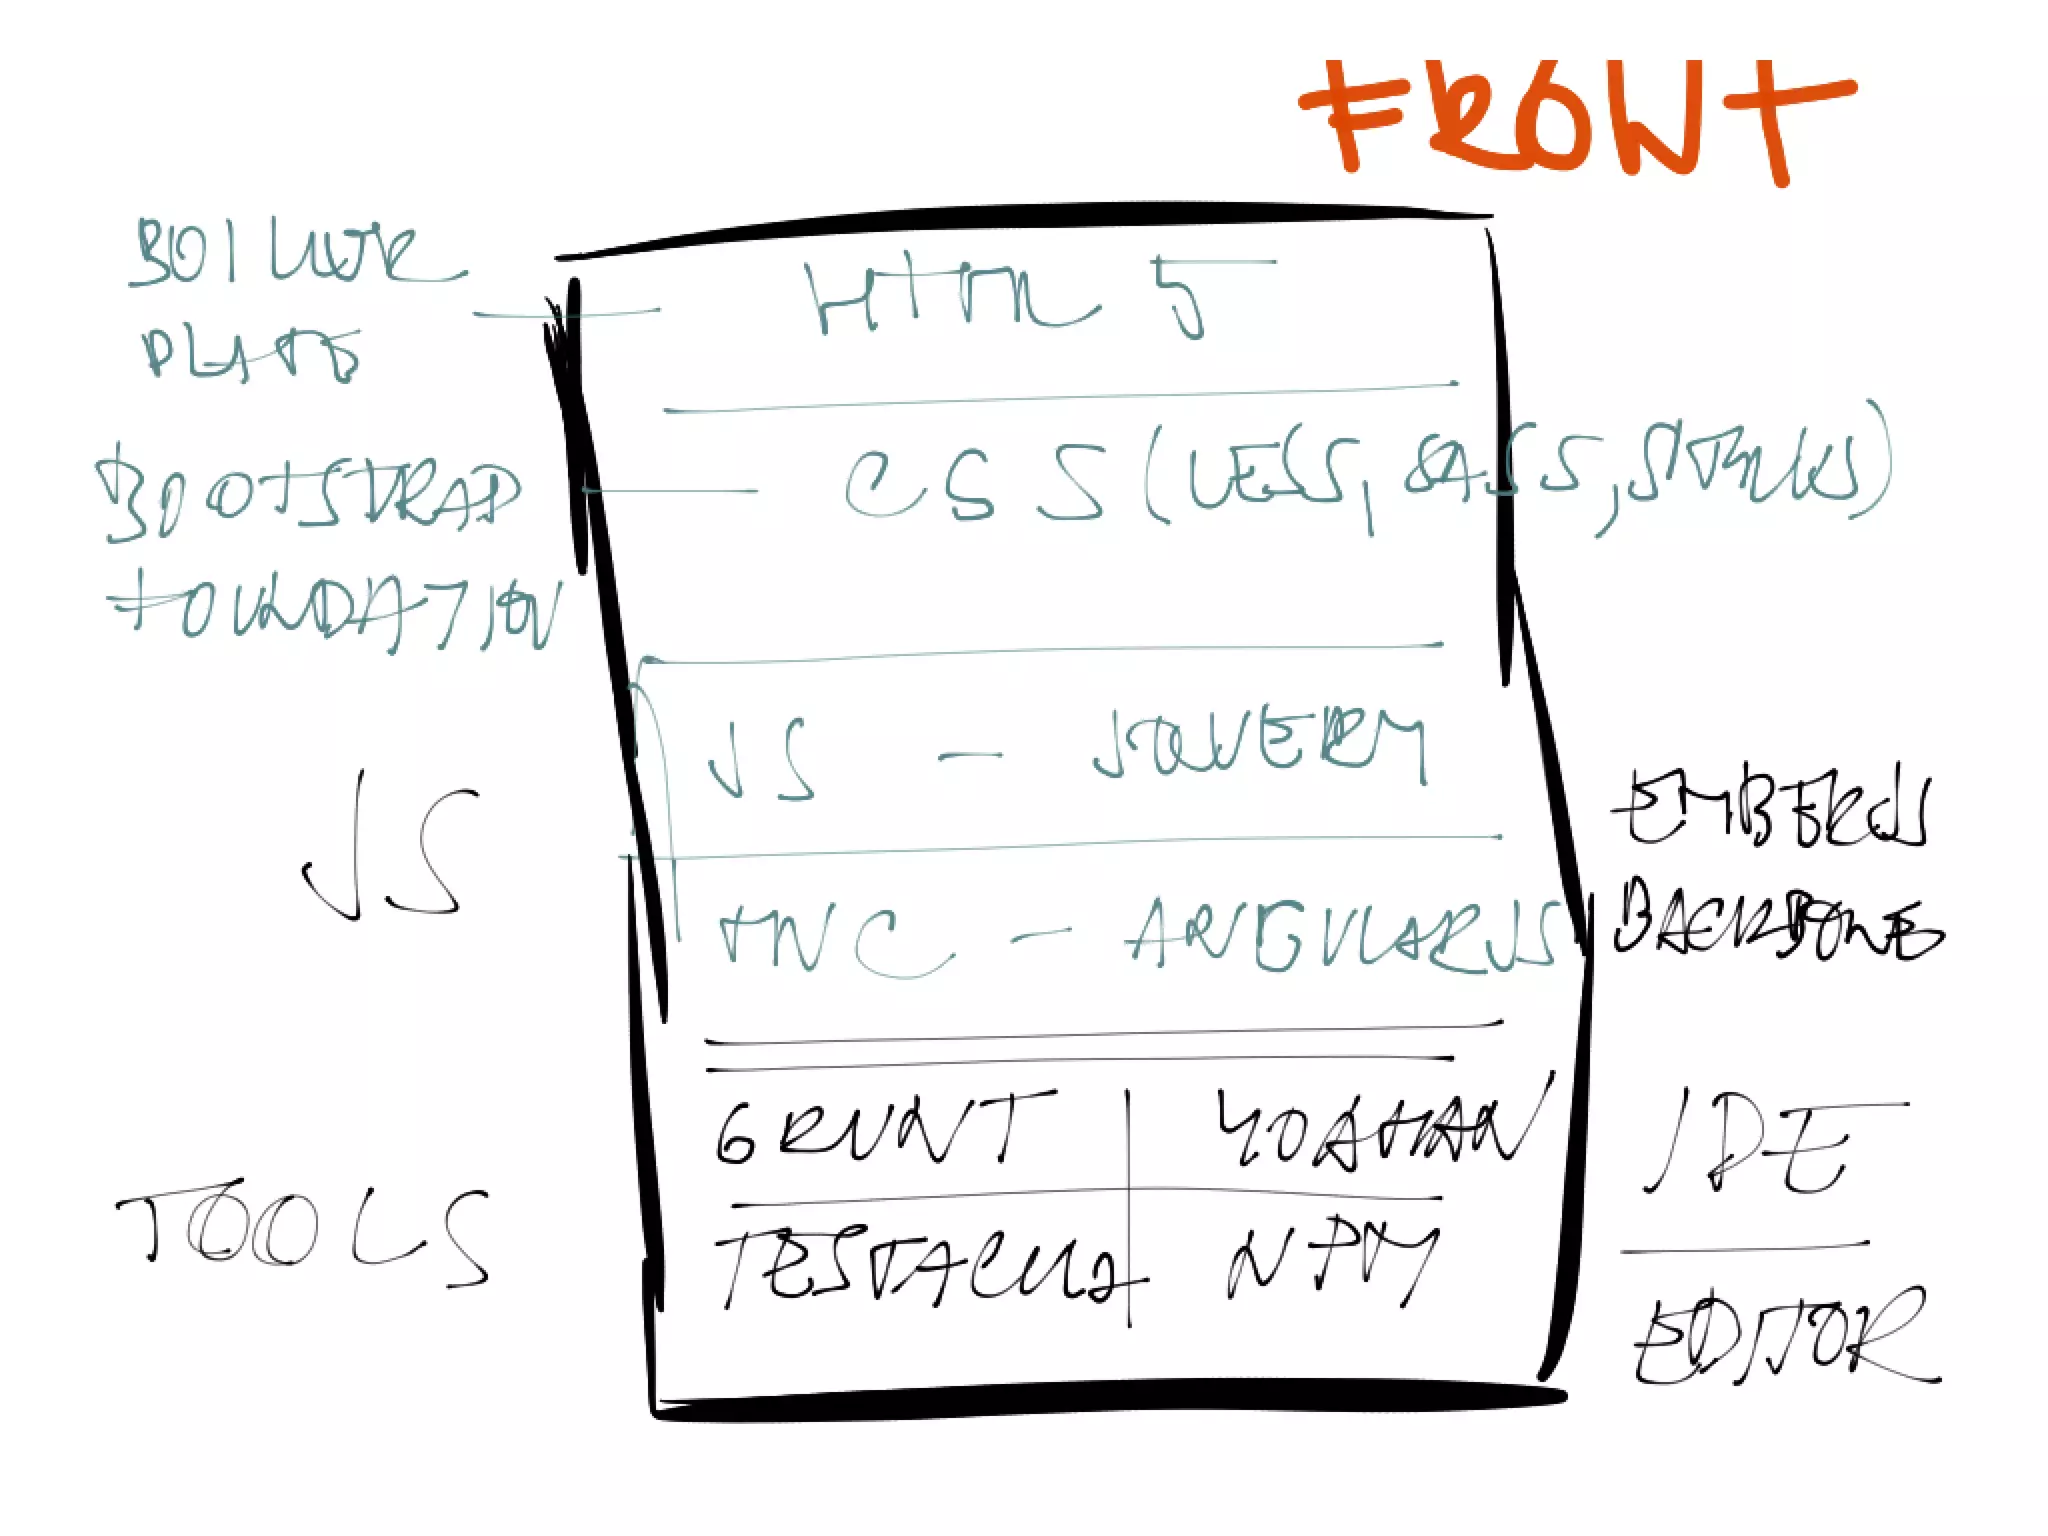 FRONT
BOILER
PLATE
HTML 5
BOOTSTRAP
FOUNDATION
CSS (LESS, SASS, STYLUS)
JS
JS - JQUERY
MVC - ANGULARJS
EMBERJS
BACKBONE
TOOLS
GRUNT
YOAMAN
TESTACULA
NPM
IDE
EDITOR